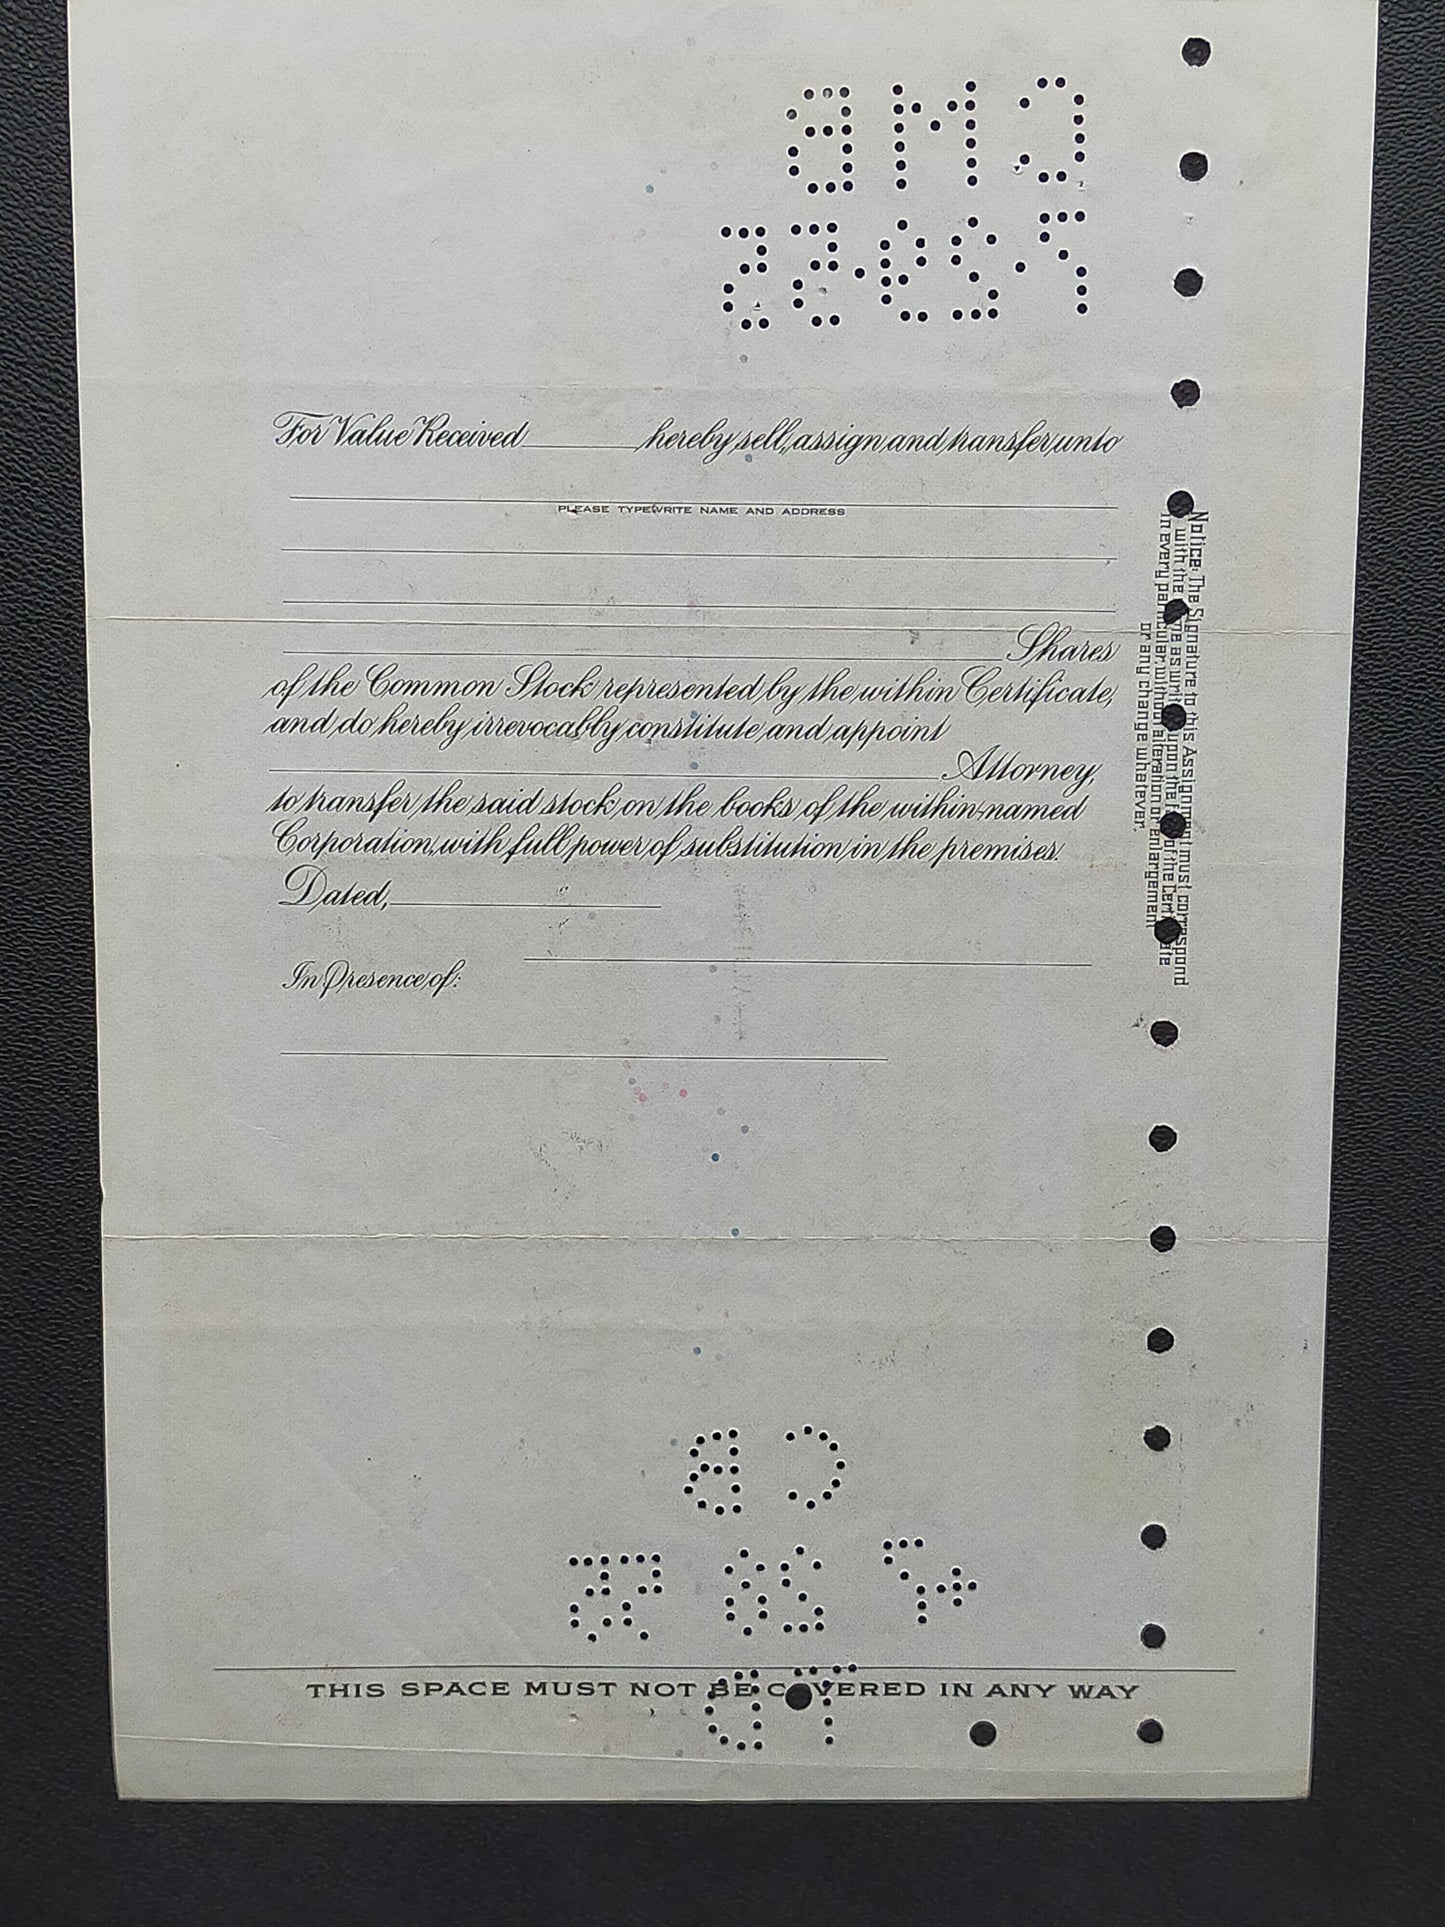 CMB
7.29.55
For Value Received ________ hereby sell, assign and transfer unto
PLEASE TYPEWRITE NAME AND ADDRESS
Shares
of the Common Stock represented by the within Certificate,
and do hereby irrevocably constitute and appoint
Attorney,
to transfer the said stock on the books of the within-named
Corporation, with full power of substitution in the premises.
Dated,
In Presence of:
Notice: The Signature to this Assignment must correspond
with the name as written upon the face of the Certificate
in every particular without alteration or enlargement
or any change whatever.
CB
THIS SPACE MUST NOT BE COVERED IN ANY WAY